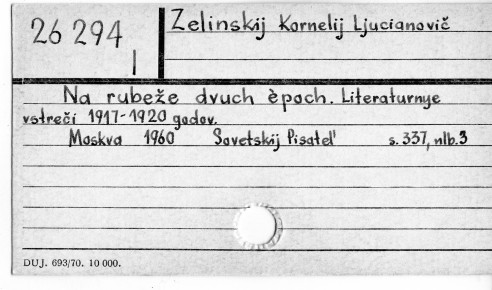 26 294
I
Zelinskij Kornelij Ljucianovič
Na rubeže dvuch èpoch. Literaturnye
vstreči 1917-1920 godov.
Moskva 1960 Sovetskij Pisatel' s. 337, nlb. 3
DUJ. 693/70. 10 000.